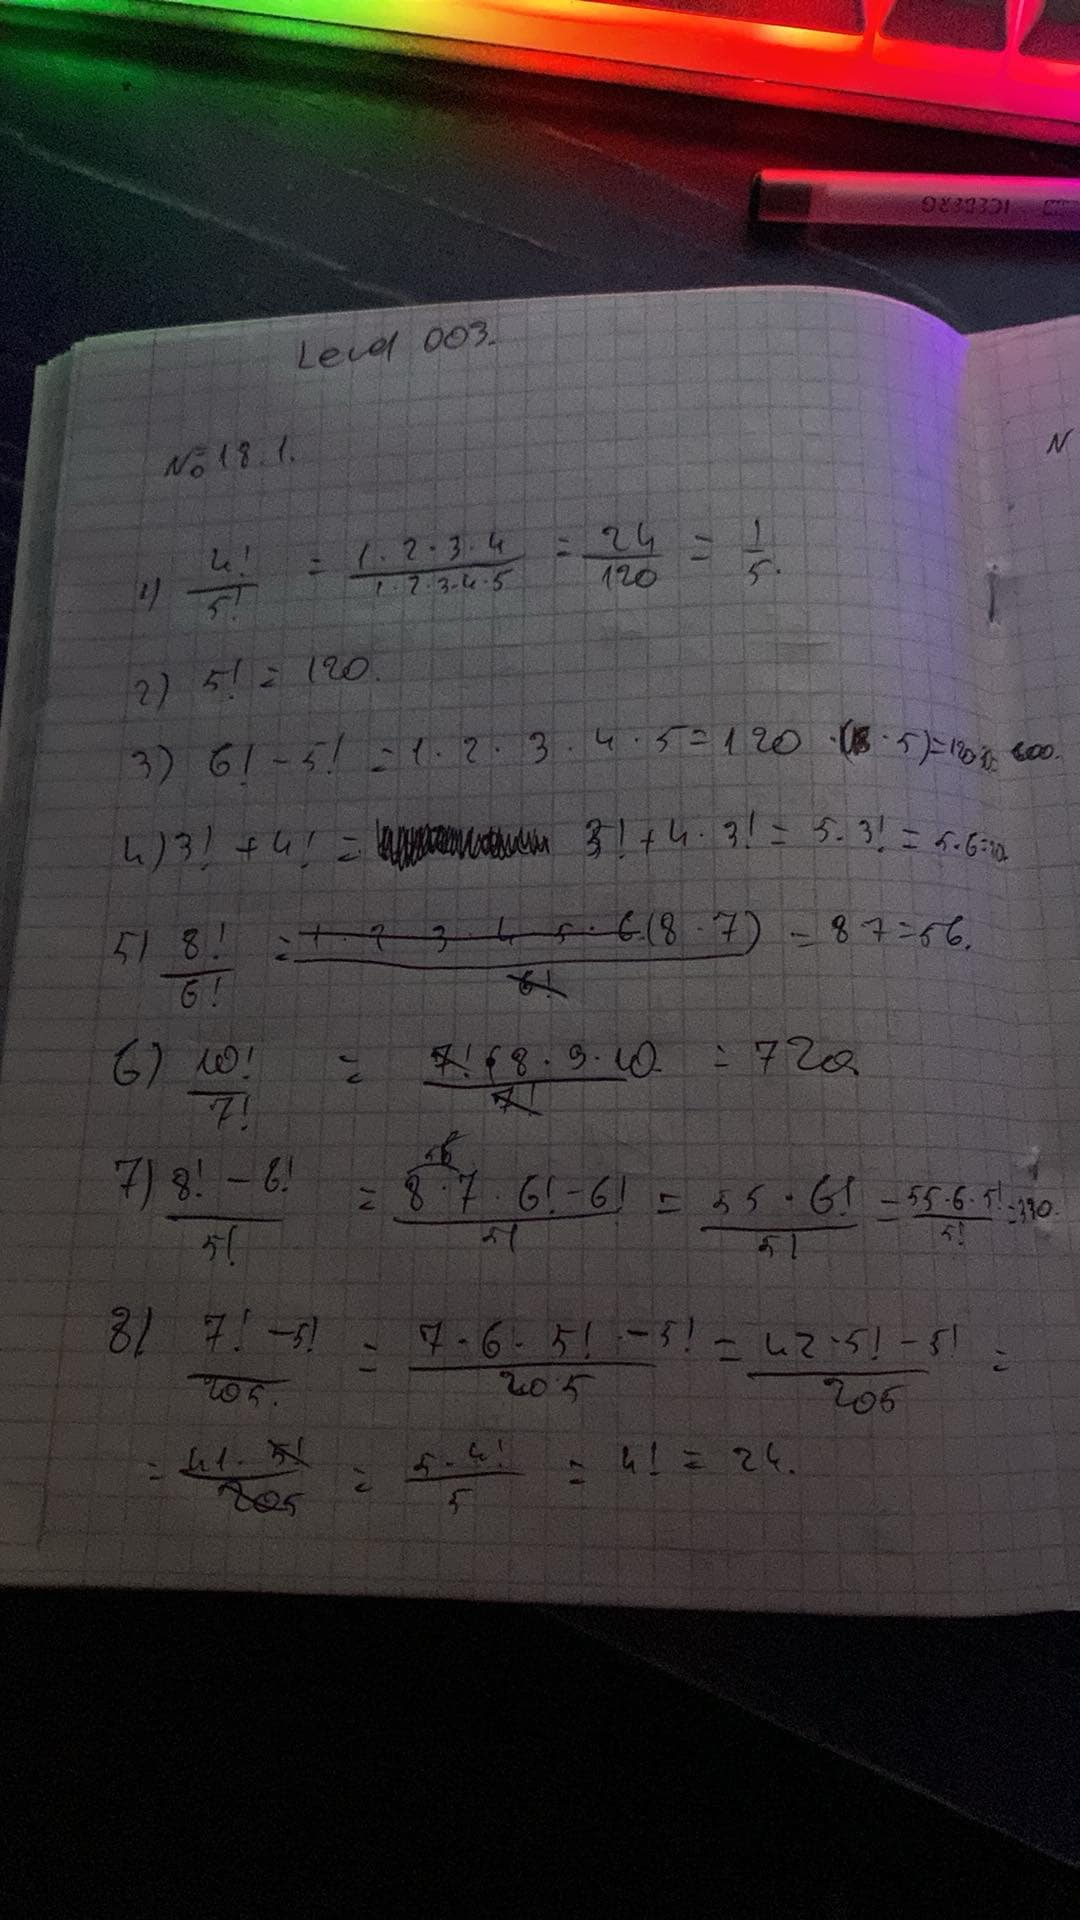 ICEBERG
Level 003.
№ 18.1.
N
1) 4!/5! = 1·2·3·4/1·2·3·4·5 = 24/120 = 1/5.
2) 5! = 120.
3) 6! - 5! = 1·2·3·4·5 = 120 ·5) = 600.
4) 3! + 4! = 3! + 4·3! = 5·3! = 5·6=30
5) 8!/6! = 1·2 3 4 5·6(8·7)/6! = 8 7 = 56.
6) 10!/7! = 7!(8·9·10/7! = 720
7) 8! - 6!/5! = 56 8·7·6! - 6!/5! = 55·6!/5! = 55·6·5!/5! = 330.
8) 7! - 5!/205. = 7·6·5! - 5!/205 = 42·5! - 5!/205 =
= 41·5!/205 = 5·4!/5 = 4! = 24.